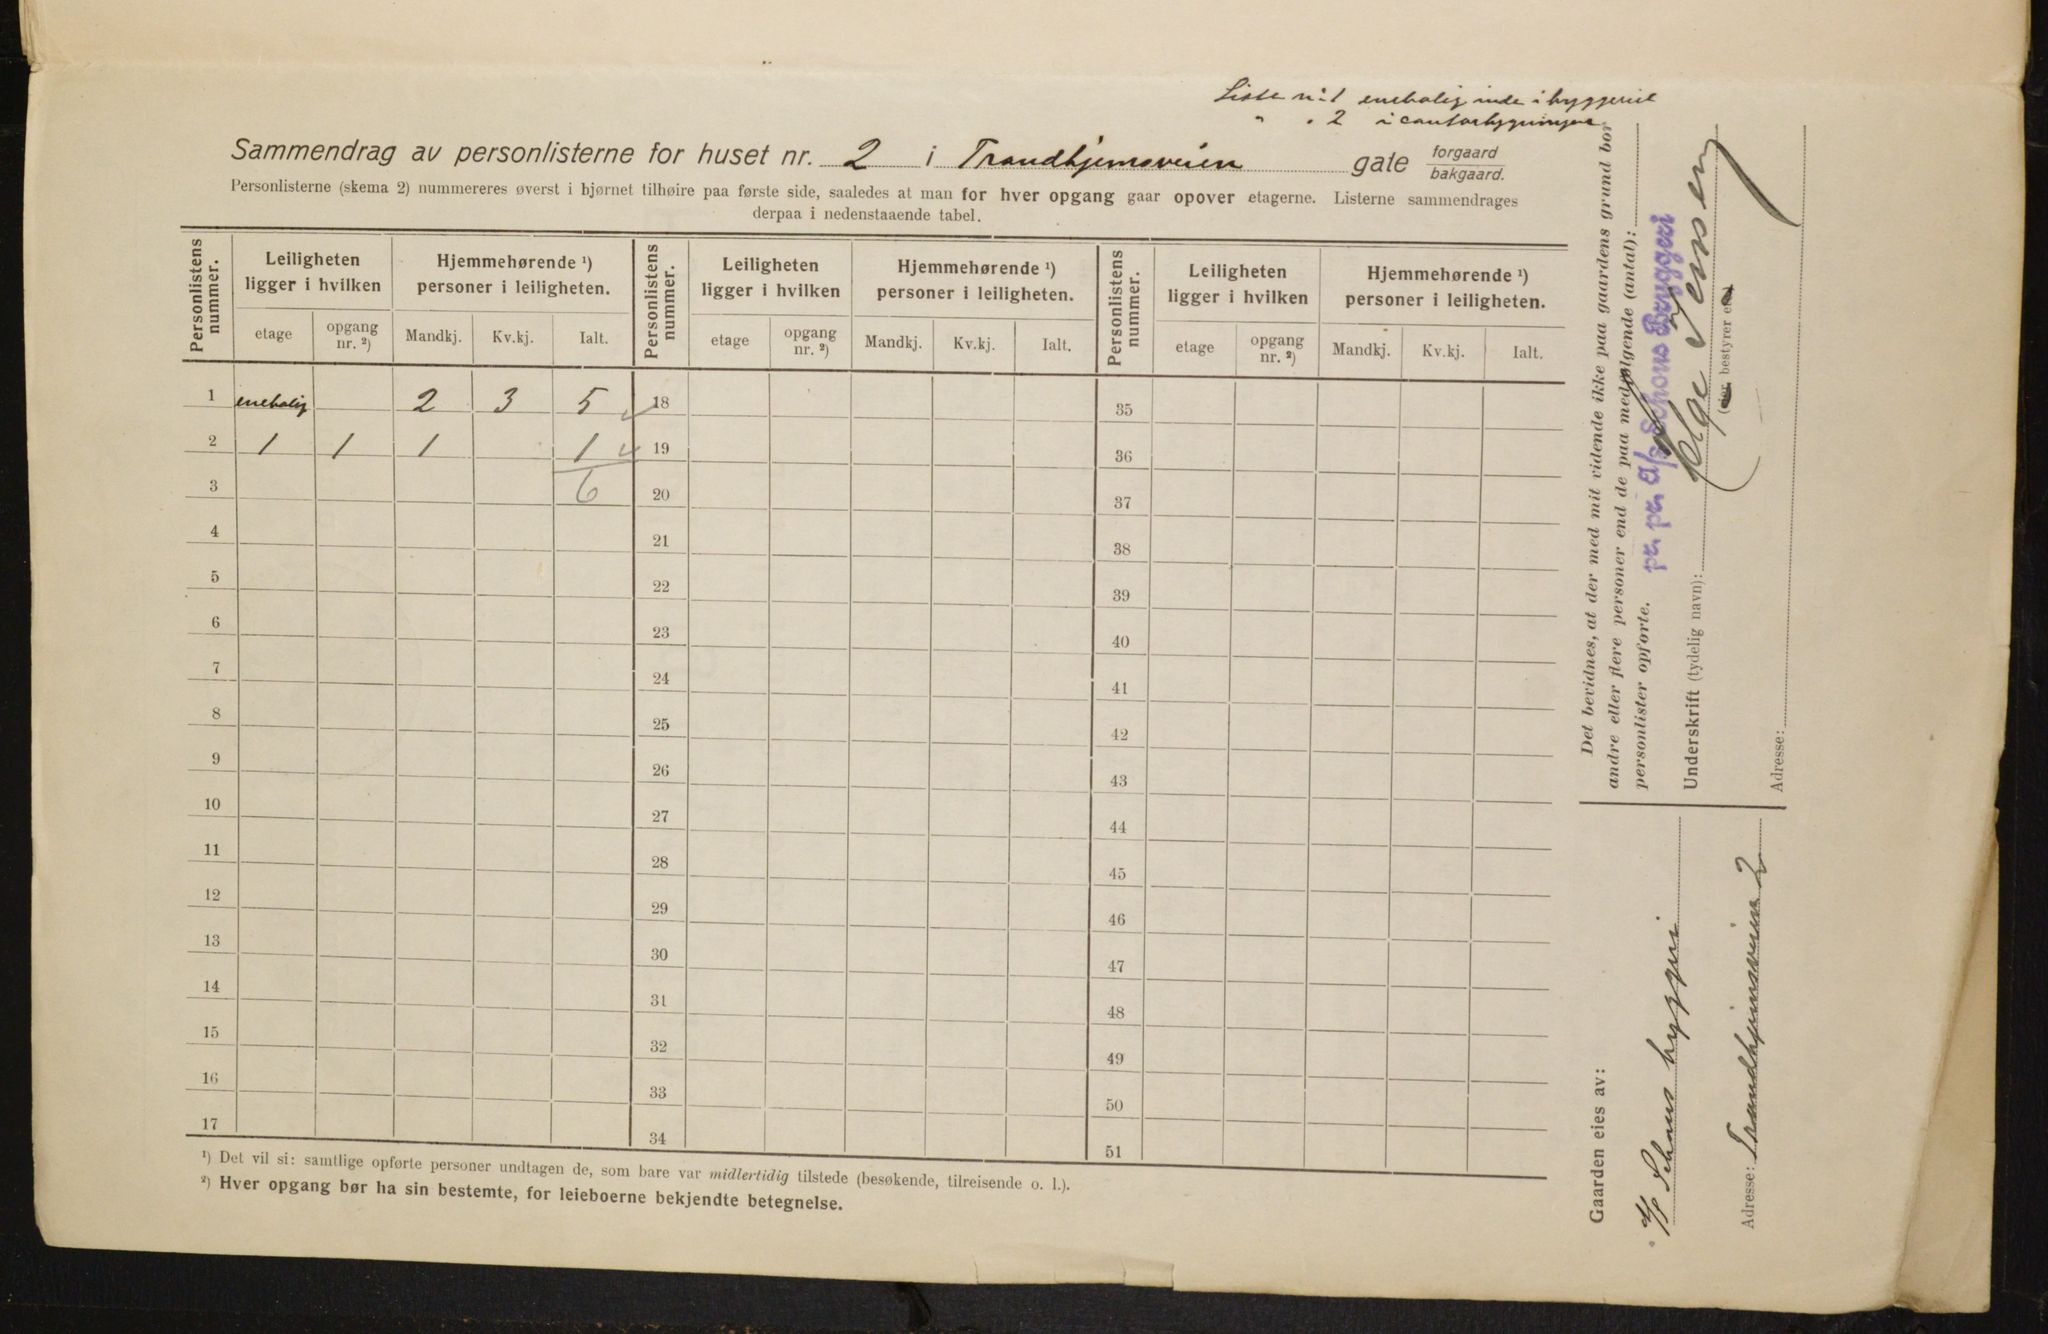 Liste nr 1 enebolig inde i bryggeriet
" " 2 i contorbygningen
Sammendrag av personlisterne for huset nr. 2 i Trondhjemsveien gate forgaard bakgaard.
Personlisterne (skema 2) nummereres øverst i hjørnet tilhøire paa første side, saaledes at man for hver opgang gaar opover etagerne. Listerne sammendrages
derpaa i nedenstaaende tabel.
Personlistens nummer. Leiligheten ligger i hvilken Hjemmehørende ¹) personer i leiligheten. Personlistens nummer. Leiligheten ligger i hvilken Hjemmehørende ¹) personer i leiligheten. Personlistens nummer. Leiligheten ligger i hvilken Hjemmehørende ¹) personer i leiligheten.
etage opgang nr. ²) Mandkj. Kv.kj. Ialt. etage opgang nr. ²) Mandkj. Kv.kj. Ialt. etage opgang nr. ²) Mandkj. Kv.kj. Ialt.
1 enebolig 2 3 5 18 35
2 1 1 1 1 19 36
3 6 20 37
4 21 38
5 22 39
6 23 40
7 24 41
8 25 42
9 26 43
10 27 44
11 28 45
12 29 46
13 30 47
14 31 48
15 32 49
16 33 50
17 34 51
¹) Det vil si: samtlige opførte personer undtagen de, som bare var midlertidig tilstede (besøkende, tilreisende o. l.).
²) Hver opgang bør ha sin bestemte, for leieboerne bekjendte betegnelse.
Det bevidnes, at der med mit vidende ikke paa gaardens grund bor
andre eller flere personer end de paa medfølgende (antal):
personlister opførte.
pr. pr. A/S Schous Bryggeri
Underskrift (tydelig navn): Jenssen
(eier bestyrer etc.)
Adresse:
Gaarden eies av:
A/S Schous bryggeri
Adresse: Trondhjemsveien 2